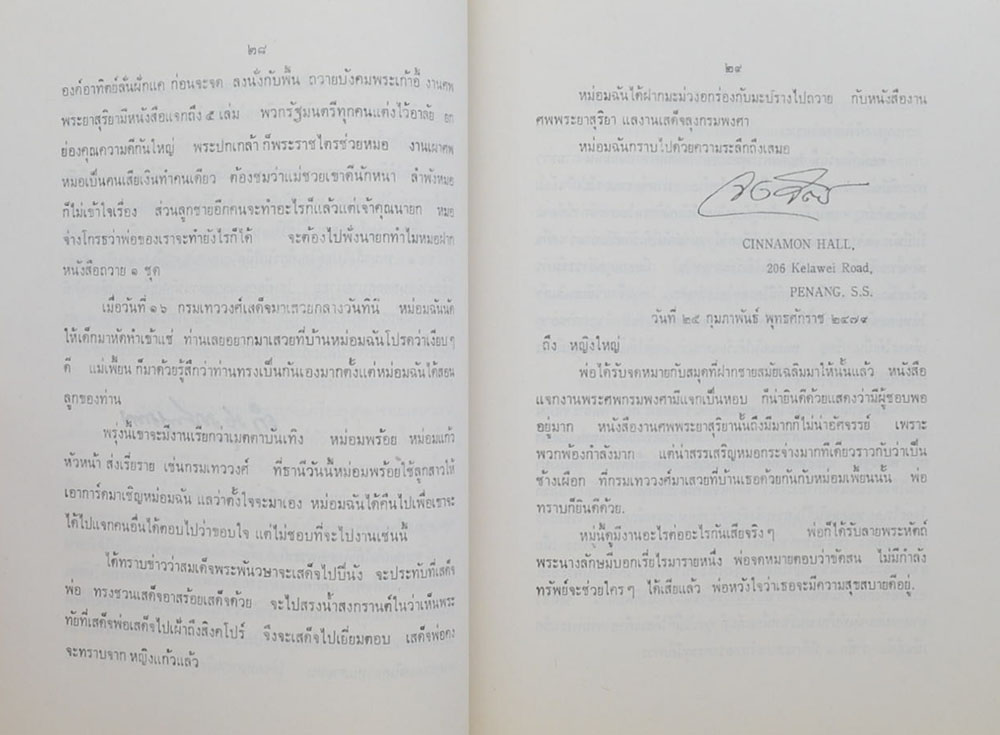 ๒๘
องค์อาทิตย์ลั่นผักแค ก่อนจะจุด ลงนั่งกับพื้น ถวายบังคมพระเก้าอี้ งานศพ
พระยาสุริยามีหนังสือแจกถึง ๕ เล่ม พวกรัฐมนตรีทุกคนแต่งไว้อาลัย ยก
ย่องคุณความดีกันใหญ่ พระปกเกล้า ก็พระราชไตรช่วยหมอ งานเผาศพ
หมอเป็นคนเสียเงินทำคนเดียว ต้องชมว่าแม่ช่วยเขาดีนักหนา ลำพังหมอ
ก็ไม่เข้าใจเรื่อง ส่วนลูกชายอีกคนจะทำอะไรก็แล้วแต่เจ้าคุณนายก หมอ
จ่างโกรธว่าพ่อของเราจะทำยังไรก็ได้ จะต้องไปฟังนายกทำไมหมอฝาก
หนังสือถวาย ๑ ชุด
เมื่อวันที่ ๑๖ กรมเทววงศ์เสด็จมาเสวยกลางวันที่นี่ หม่อมฉันนัด
ให้เด็กมาหัดทำเข้าแช่ ท่านเลยอยากมาเสวยที่บ้านหม่อมฉันโปรดว่าเงียบๆ
ดี แม่เพี้ยน ก็มาด้วยรู้สึกว่าท่านทรงเป็นกันเองมากตั้งแต่หม่อมฉันได้สอน
ลูกของท่าน
พรุ่งนี้เขาจะมีงานเรียกว่าเมตตาบันเทิง หม่อมพร้อย หม่อมแก้ว
หัวหน้า ส่งเรี่ยราย เช่นกรมเทววงศ์ ที่ธานีวันนี้หม่อมพร้อยใช้ลูกสาวให้
เอาการ์ดมาเชิญหม่อมฉัน แลว่าตั้งใจจะมาเอง หม่อมฉันได้คืนไปเพื่อเขาจะ
ได้ไปแจกคนอื่นได้ตอบไปว่าขอบใจ แต่ไม่ชอบที่จะไปงานเช่นนี้
ได้ทราบข่าวว่าสมเด็จพระพันวษาจะเสด็จไปปีนัง จะประทับที่เสด็จ
พ่อ ทรงชวนเสด็จอาสร้อยเสด็จด้วย จะไปสรงน้ำสงกรานต์ในว่าเห็นพระ
ทัยที่เสด็จพ่อเสด็จไปเฝ้าถึงสิงคโปร์ จึงจะเสด็จไปเยี่ยมตอบ เสด็จพ่อคง
จะทราบจาก หญิงแก้วแล้ว
๒๙
หม่อมฉันได้ฝากมะม่วงอกร่องกับมะปรางไปถวาย กับหนังสืองาน
ศพพระยาสุริยา แลงานเสด็จลุงกรมพงศา
หม่อมฉันกราบไปด้วยความระลึกถึงเสมอ
CINNAMON HALL,
206 Kelawei Road,
PENANG. S.S.
วันที่ ๒๕ กุมภาพันธ์ พุทธศักราช ๒๔๗๙
ถึง หญิงใหญ่
พ่อได้รับจดหมายกับสมุดที่ฝากชายสมัยเฉลิมมาให้นั้นแล้ว หนังสือ
แจกงานพระศพกรมพงศามีแจกเป็นหอบ ก็น่ายินดีด้วยแสดงว่ามีผู้ชอบพอ
อยู่มาก หนังสืองานศพพระยาสุริยานั้นถึงมีมากก็ไม่น่าอัศจรรย์ เพราะ
พวกพ้องกำลังมาก แต่น่าสรรเสริญหมอกระจ่างมากทีเดียวราวกับว่าเป็น
ช้างเผือก ที่กรมเทววงศ์มาเสวยที่บ้านเธอด้วยกันกับหม่อมเพี้ยนนั้น พ่อ
ทราบก็ยินดีด้วย
หมู่นี้ดูมีงานอะไรต่ออะไรกันเสียจริง ๆ พ่อก็ได้รับลายพระหัตถ์
พระนางลักษมีบอกเรี่ยไรมารายหนึ่ง พ่อจดหมายตอบว่าขัดสน ไม่มีกำลัง
ทรัพย์จะช่วยใครๆ ได้เสียแล้ว พ่อหวังใจว่าเธอจะมีความสุขสบายดีอยู่.